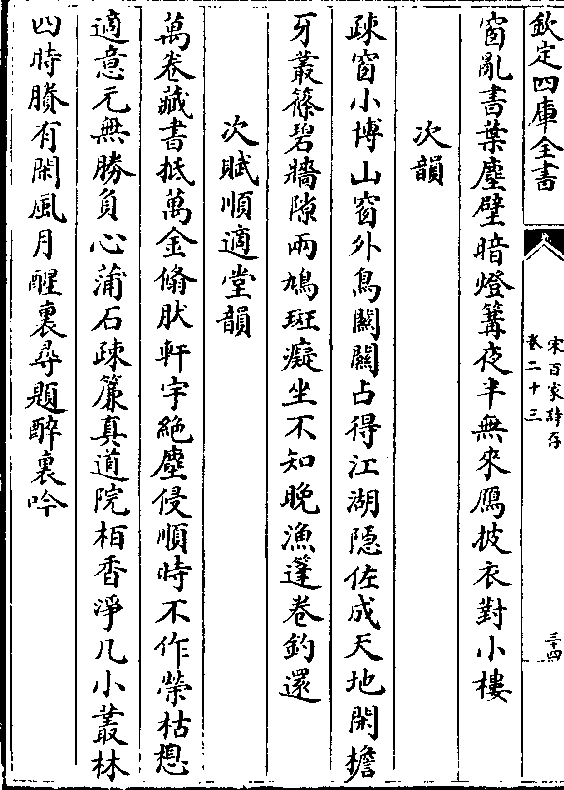 欽定四庫全書
宋百家詩存
卷二十三
三十四
窗亂書葉塵壁暗燈篝夜半無來鴈披衣對小樓
次韻
疎窗小博山窗外鳥闗闗占得江湖隱佐成天地閒擔
牙叢篠碧牆隙兩鳩斑癡坐不知晚漁篷卷釣還
次賦順適堂韻
萬卷藏書抵萬金翛肰軒宇絶塵侵順時不作榮枯想
適意元無勝負心蒲石疎簾真道院栢香淨几小叢林
四時賸有閑風月醒裏尋題醉裏吟